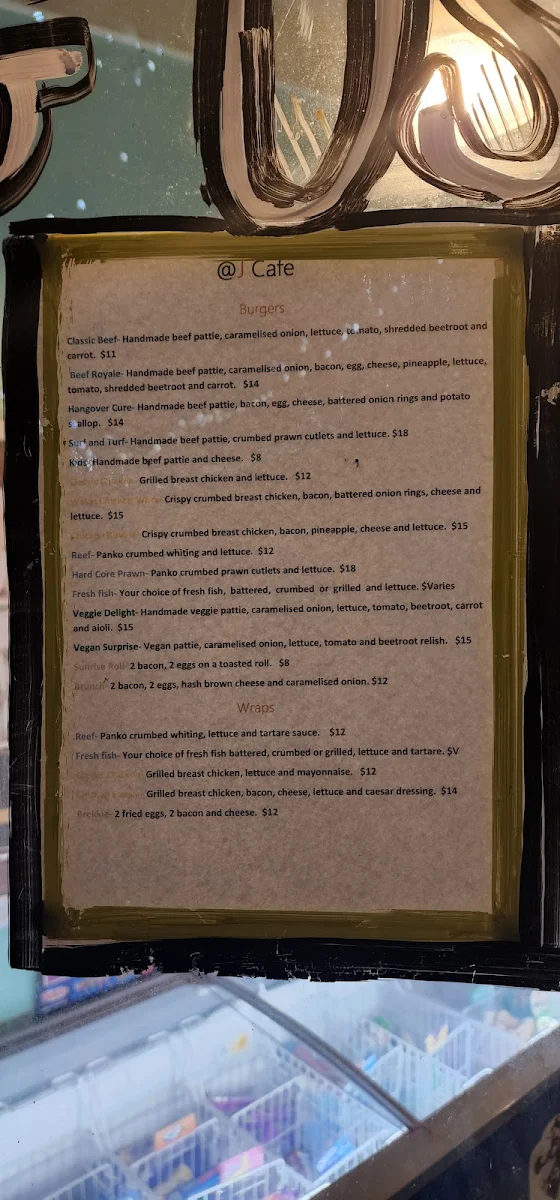 US
@J Cafe
Burgers
Classic Beef- Handmade beef pattie, caramelised onion, lettuce, tomato, shredded beetroot and
carrot. $11
Beef Royale- Handmade beef pattie, caramelised onion, bacon, egg, cheese, pineapple, lettuce,
tomato, shredded beetroot and carrot. $14
Hangover Cure- Handmade beef pattie, bacon, egg, cheese, battered onion rings and potato
scallop. $14
Surf and Turf- Handmade beef pattie, crumbed prawn cutlets and lettuce. $18
Kids- Handmade beef pattie and cheese. $8
Grilled breast chicken and lettuce. $12
Crispy crumbed breast chicken, bacon, battered onion rings, cheese and
lettuce. $15
Crispy crumbed breast chicken, bacon, pineapple, cheese and lettuce. $15
Reef- Panko crumbed whiting and lettuce. $12
Hard Core Prawn- Panko crumbed prawn cutlets and lettuce. $18
Fresh fish- Your choice of fresh fish, battered, crumbed or grilled and lettuce. $Varies
Veggie Delight- Handmade veggie pattie, caramelised onion, lettuce, tomato, beetroot, carrot
and aioli. $15
Vegan Surprise- Vegan pattie, caramelised onion, lettuce, tomato and beetroot relish. $15
Sunrise Roll- 2 bacon, 2 eggs on a toasted roll. $8
Brunch- 2 bacon, 2 eggs, hash brown cheese and caramelised onion. $12
Wraps
Reef- Panko crumbed whiting, lettuce and tartare sauce. $12
Fresh fish- Your choice of fresh fish battered, crumbed or grilled, lettuce and tartare. $V
Grilled breast chicken, lettuce and mayonnaise. $12
Grilled breast chicken, bacon, cheese, lettuce and caesar dressing. $14
2 fried eggs, 2 bacon and cheese. $12